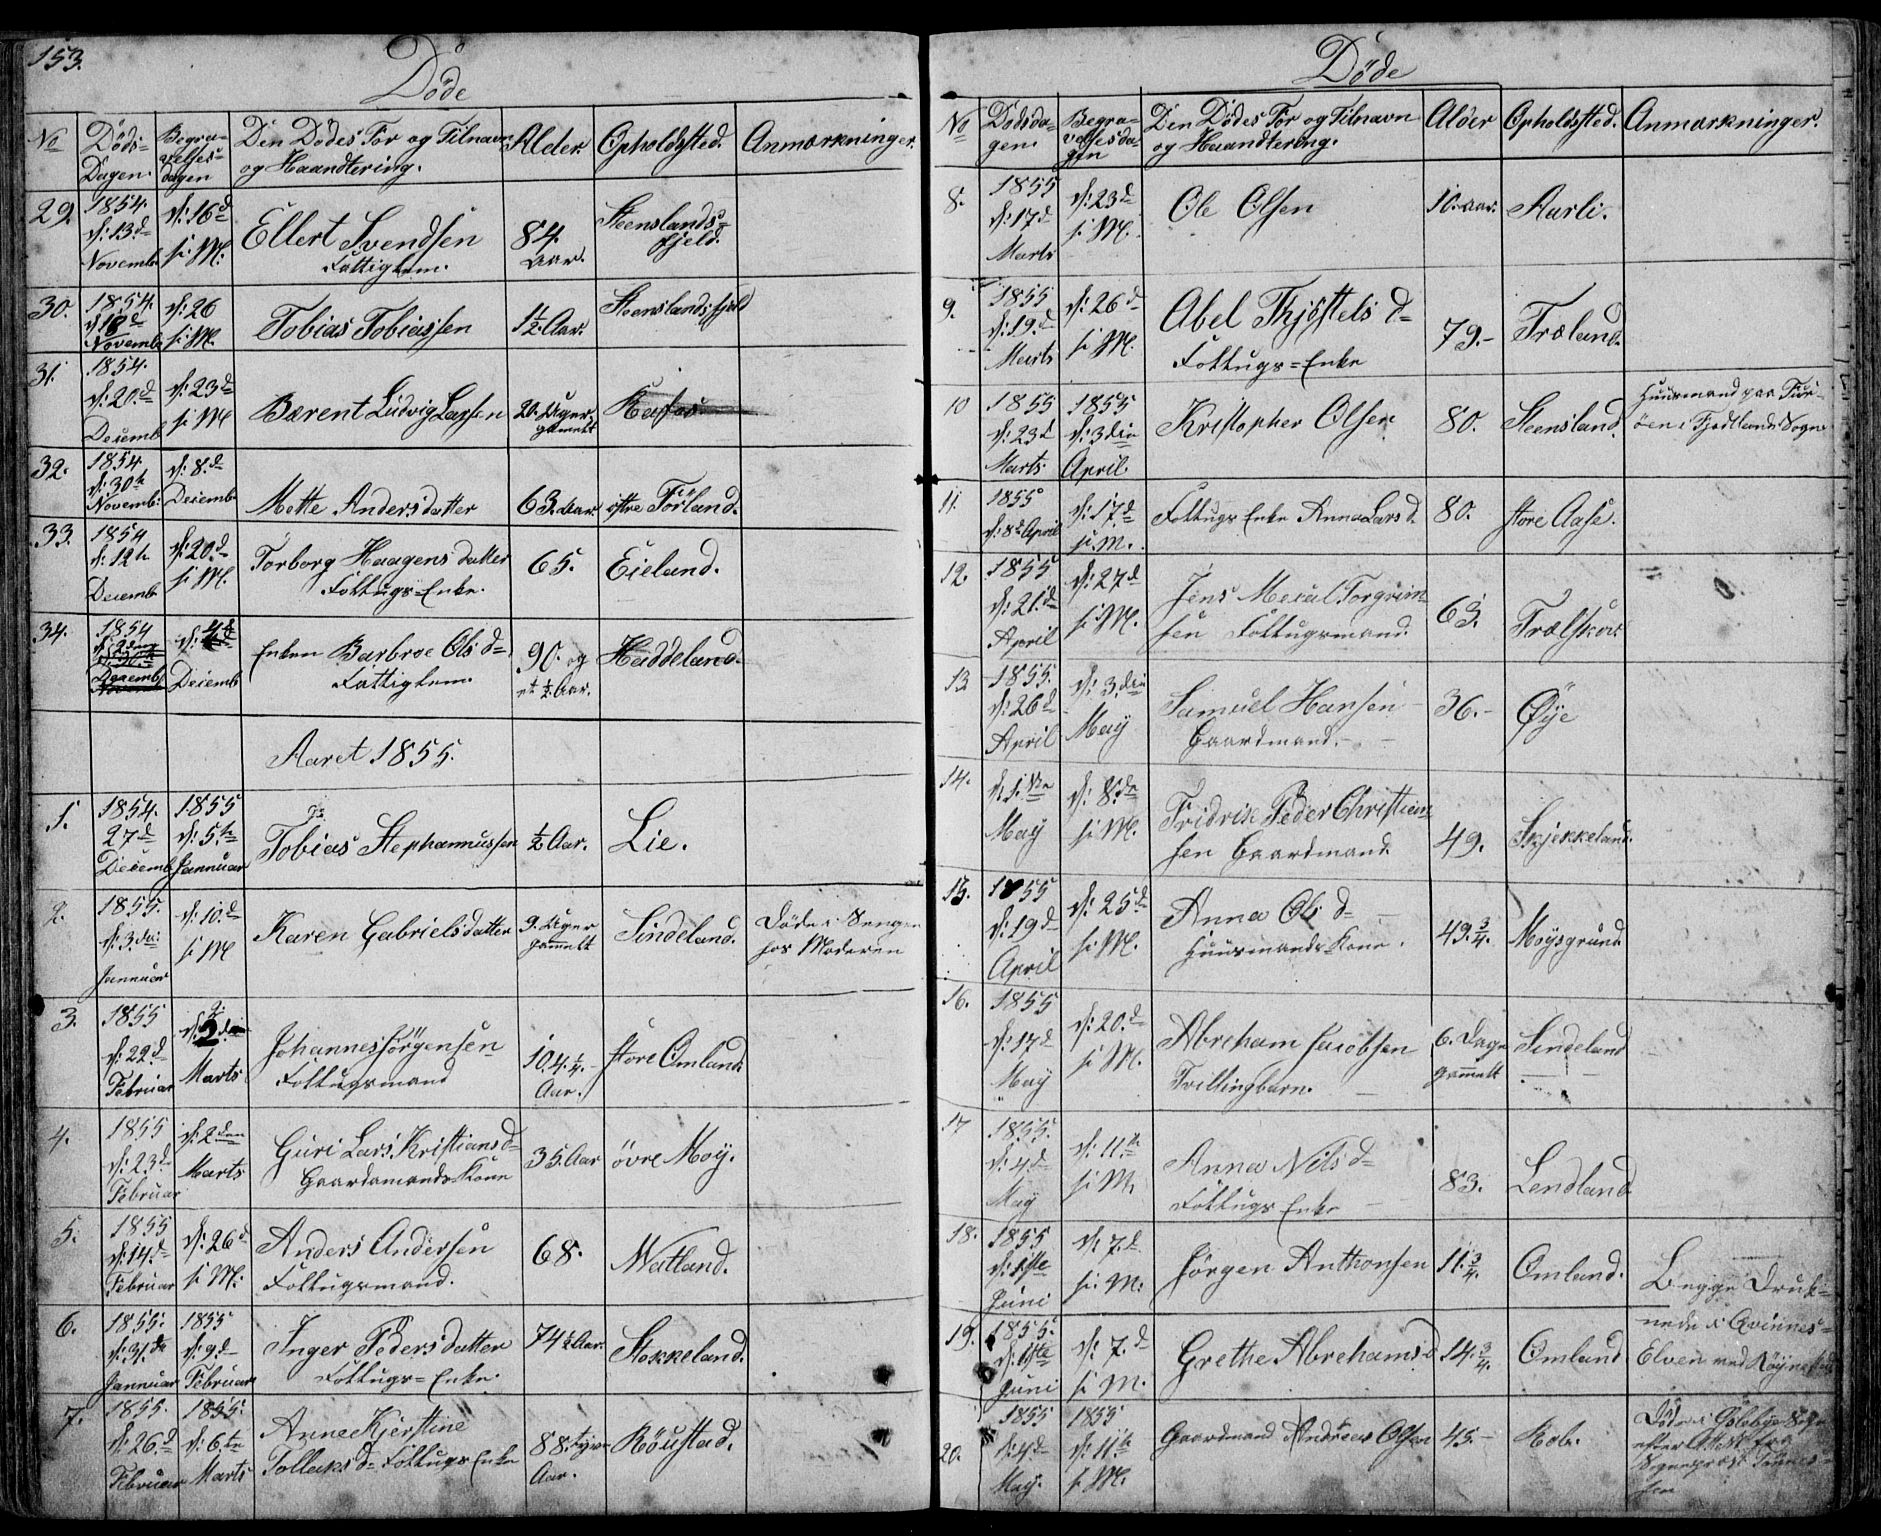 153.
Döde
No
Döds-
Dagen.
Begra-
velses-
dagen
Den Dödes For og Tilnavn
og Haandtering.
Alder.
Opholdssted.
Anmærkninger.
29.
1854.
d: 13.d
Novemb.
d: 16d
s: M:
Ellert Svendsen
Fattiglem.
84.
Aar.
Steenslands-
fjeld.
30.
1854.
d 18d
Novemb
d: 26
s: M.
Tobias Tobiassen
1½ Aar.
Steenslandsfjeld
31.
1854.
d: 20.d
Decemb
d: 23d
s: M
Bærent Ludvig Larsen
20. Uger
gamelt
32.
1854.
d: 30te
Novemb:
d: 8.d
Decemb
Mette Andersdatter
63. Aar
östre Förland.
33.
1854
d: 12te
Decemb
d: 20.d
s: M.
Torborg Haagensdatter
Föllugs=Enke.
65.
Eieland.
34.
1854
d: 2den
Decemb
d: 4d
Decemb
Enken Barbroe Ols d=
Fattiglem.
90. og
et ½ Aar.
Haddeland.
Aaret 1855.
1.
1854.
27d
Decemb
1855
d: 5te
Januar
Tobias Stephannussen
½ Aar.
Lie.
2.
1855.
d: 3die
Januar
d: 10.d
s: M
Karen Gabrielsdatter
9. Uger
gamelt
Sindeland.
Döde i Sengen
hos Moderen
3.
1855
d: 22d
Februar
d: 2den
Marts
Johannes Jörgensen
Föllugsmand
104¼
Aar.
store Omland.
4.
1855
d: 23d
Februar
d: 2den
Marts
Guri Lars Kristians d=
Gaardamands Kone
35. Aar
övre Moÿ.
5.
1855
d: 14.d
Februar
d: 26d
s: M:
Anders Andersen
Föllugsmand.
68.
Watland.
6.
1855.
d: 31.d
Januar
1855
d: 9.d
Februar
Inger Pedersdatter
Föllugs=Enke.
74½ Aar.
Stokkeland.
7.
1855.
d: 26.d
Februar
1855.
d: 6.te
Marts
Anne Kjerstine
Tollaks d= Föllugs Enke
88.
Aar.
Röustad.
Döde
No
Dödsda-
gen.
Begra-
velsesda-
gen
Den Dödes For og Tilnavn
og Haandtering.
Alder
Opholdssted.
Anmærkninger.
8.
1855
d: 17d
Marts
d: 23d
s: M.
Ole Olsen
10. aar.
Aarli.
9.
1855
d: 19.d
Marts
d: 26d
s: M.
Abel Thjöstels d=
Föllugs=Enke
79.-
Træland.
10
1855
d: 23d
Marts.
1855
d: 3die
April.
Kristopher Olsen
80.
Steensland.
Huusmand paa Fur-
öen i Fjotlands Sogn
11.
1855
d: 8d April
d: 17d
s: M.
Föllugs Enke Anna Lars d.
80.
store Aase.
12.
1855
d: 21.d
April
d: 27d
s: M.
Jens Mecal Torgrim-
sen Föllugsmand.
63.
Trælskou.
13
1855.
d: 26d
April
d: 3.die
May
Samuel Hansen
Gaardmand.-
36.-
Öÿe
14.
d. 1.ste
May
d: 8.de
s: M.
Fridrik Peder Christian-
sen Gaardmand.
49.
Skjekkeland.
15.
1855
d: 19d
April
d: 25d
s: M.
Anna Ols d=
Huusmands Kone.
49.¾.
Moÿsgrund.
16.
1855
d: 17d
May
d: 20.d
s: M.
Abreham Jacobsen
Tvillingbarn.
6. Dage
gamelt
Sindeland
17
1855.
d: 4d
May
d: 11.te
s: M.
Anna Nils d=
Föllugs Enke
83.
Lendland
18.
1855
d: 1ste
Juni
d: 7.d
s: M:
Jörgen Anthonsen
11.¾.
Omland.
Begge Druk-
nede i Qvinnes-
Elven ved
19.
1855.
d: 1ste
Juni
d: 7.d
s: M.
Grethe Abrehams d
14.¾.
Omland
20.
1855
d: 4d
May.
1855
d: 11te
s: M.
Gaardmand Andreas Olsen
45.-
Röb.
Döde i
efter Attest fra
Sognepræst Tönnes-
sen